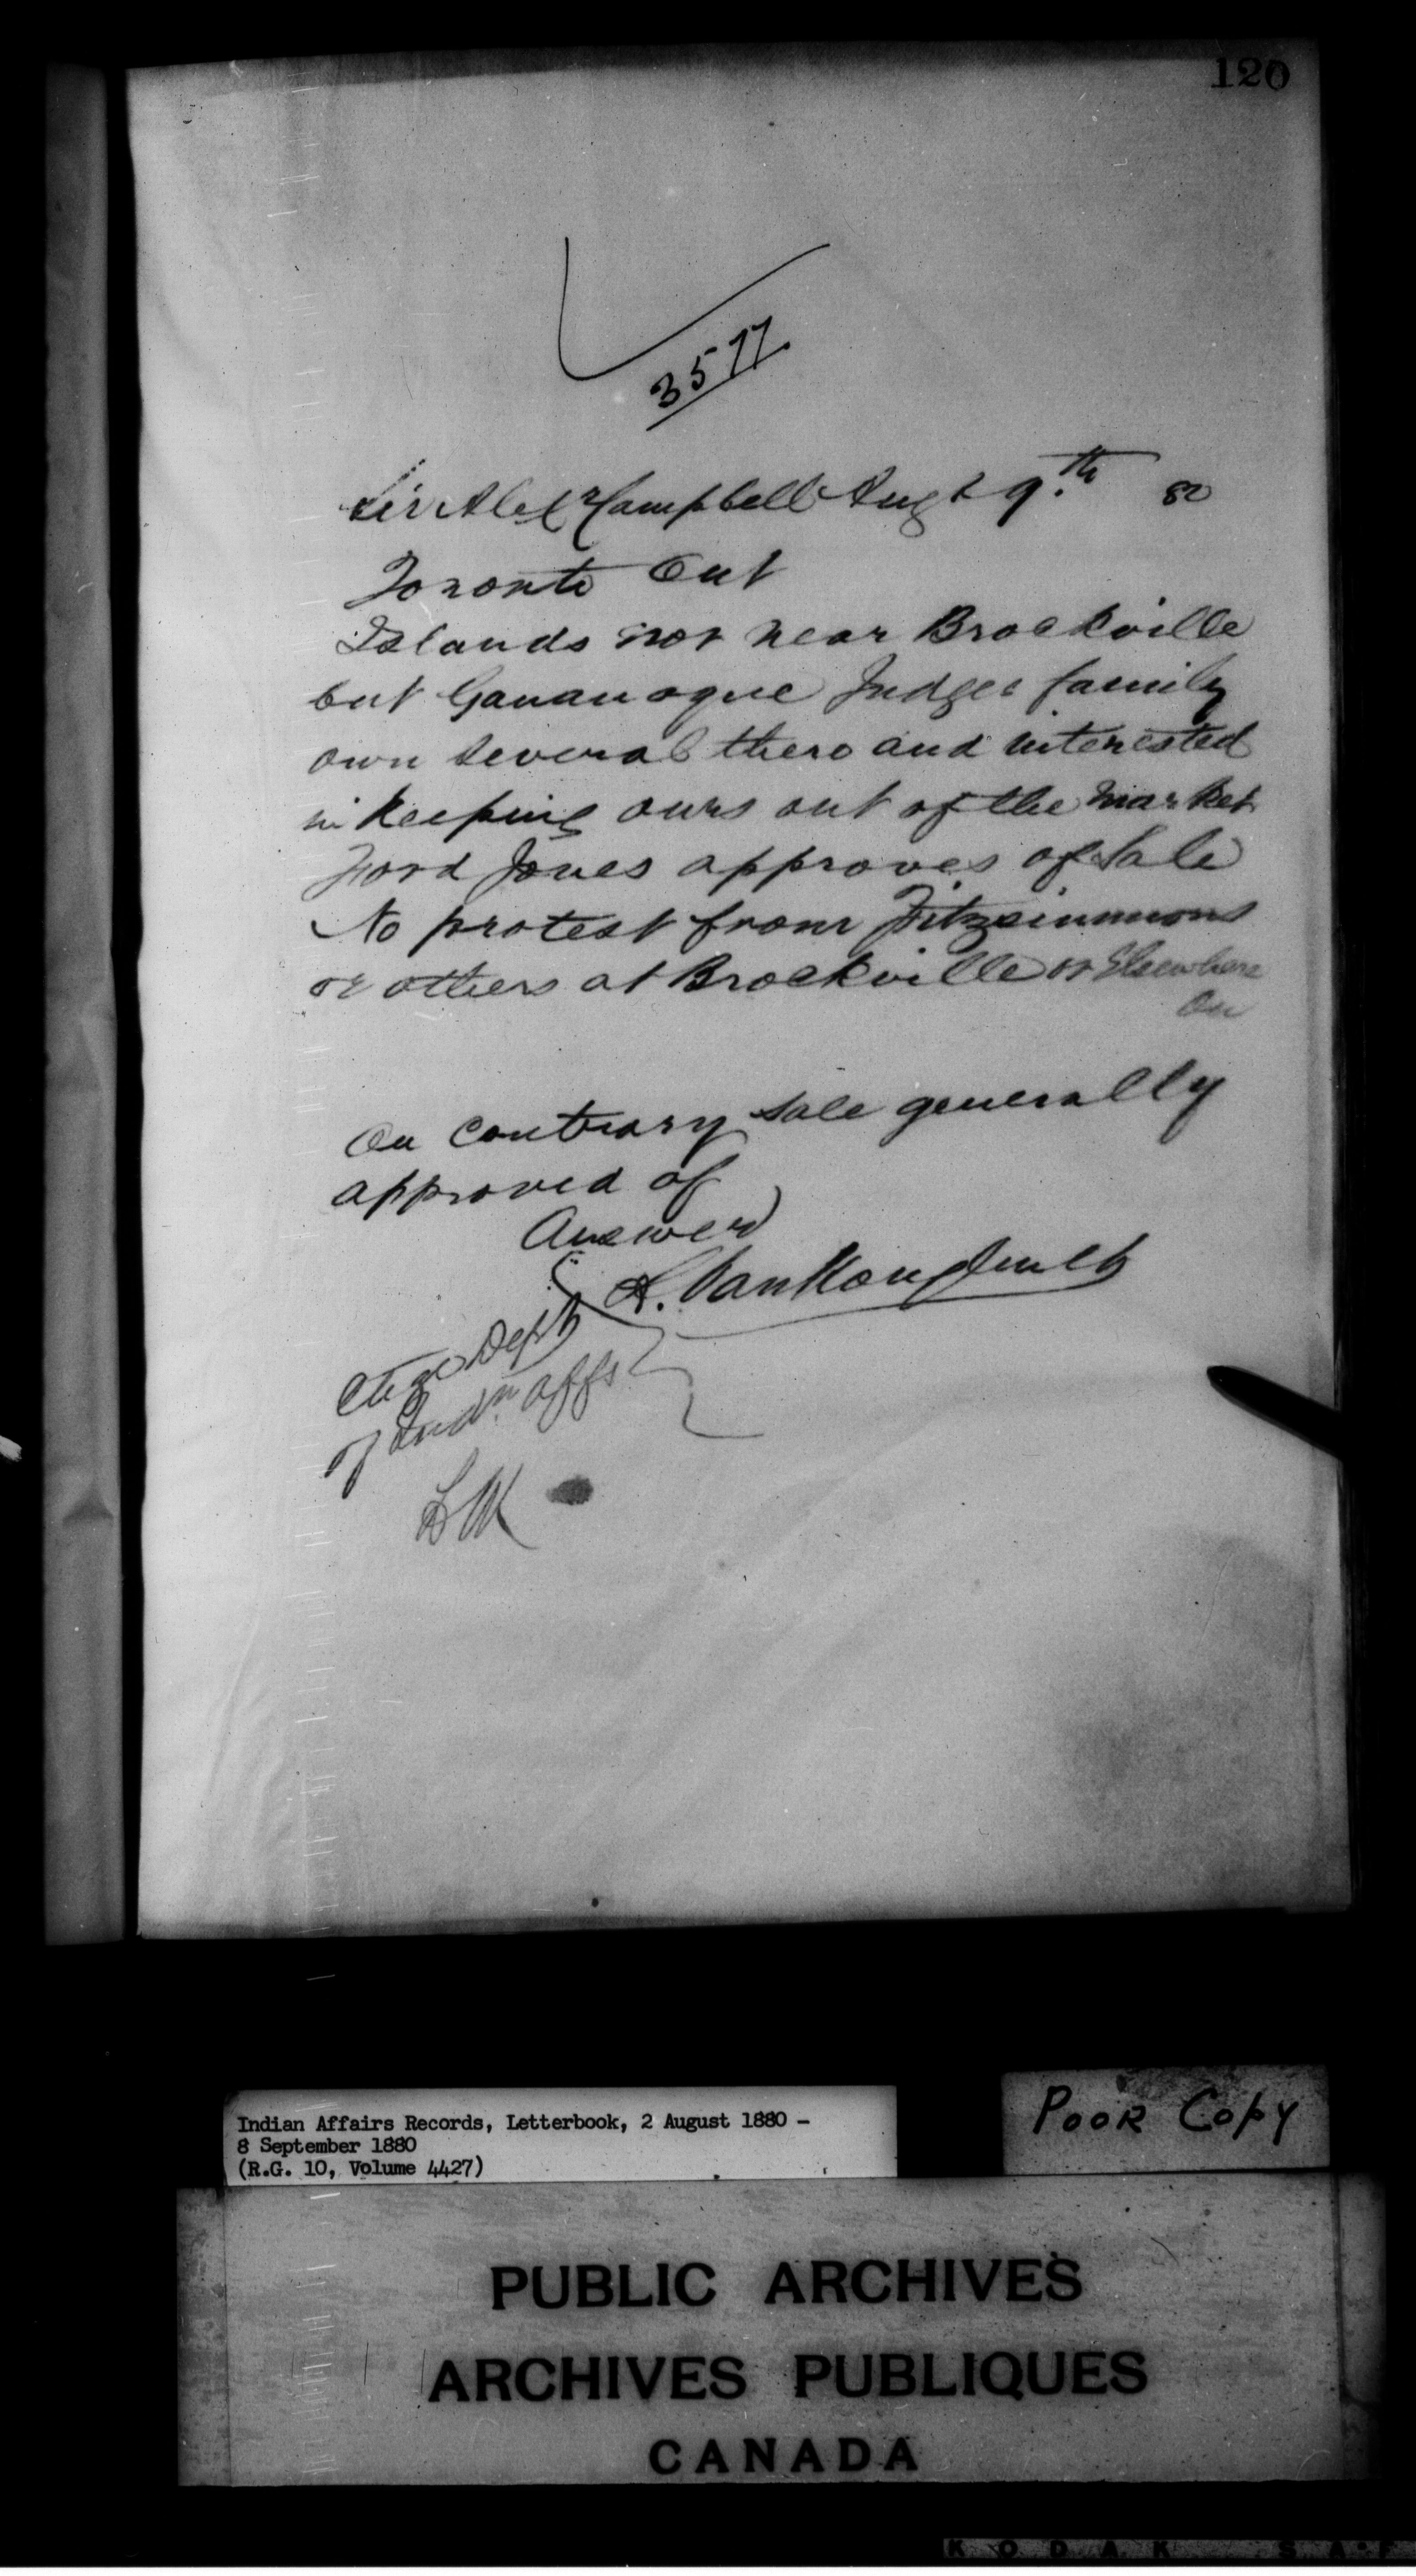 120
3577
Sir Alexr Campbell Augt 9.th 80
Toronto Ont
Islands not near Brockville
but Gananoque Judges family
own several there and interested
in keeping ours out of the market
Ford Jones approves of Sale
No protest from Fitzsimmons
or others at Brockville or Elsewhere
On
On contrary sale generally
approved of
Answer
L. VanKoughnet
Chge Dept
of Indn. affs
Indian Affairs Records, Letterbook, 2 August 1880 -
8 September 1880
(R.G. 10, Volume 4427)
POOR COPY
PUBLIC ARCHIVES
ARCHIVES PUBLIQUES
CANADA
KODAK